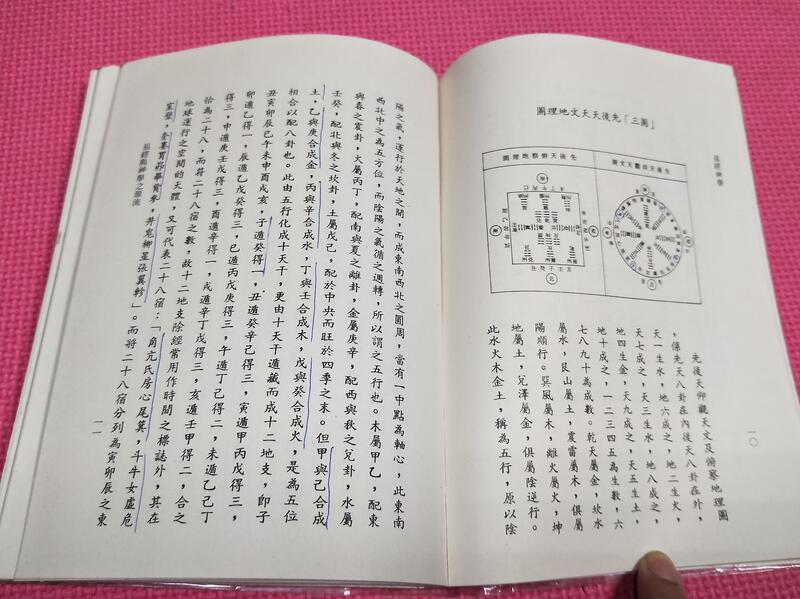 易經神學
一〇
「圖三」先後天天文地理圖
先後天仰觀天文圖
先後天俯察地理圖
先後天仰觀天文及俯察地理圖
，係先天八卦在內後天八卦在外，
天一生水，地六成之，地二生火，
天七成之，天三生木，地八成之，
地四生金，天九成之，天五生土，
地十成之，一二三四五為生數，六
七八九十為成數。乾天屬金，坎水
屬水，艮山屬土，震雷屬木，俱屬
陽順行。巽風屬木，離火屬火，坤
地屬土，兌澤屬金，俱屬陰逆行。
此水火木金土，稱為五行，原以陰
陽之氣，運行於天地之間，而成東南西北之圓周，當有一中點為軸心，此東南
西北中之為五方位，而陰陽之氣循之週轉，所以謂之五行也。木屬甲乙，配東
與春之震卦，火屬丙丁，配南與夏之離卦，金屬庚辛，配西與秋之兌卦，水屬
壬癸，配北與冬之坎卦，土屬戊己，配於中央而旺於四季之末。但甲與己合成
土，乙與庚合成金，丙與辛合成水，丁與壬合成木，戊與癸合成火，是為五位
相合以配八卦也。此由五行化成十天干，更由十天干遁藏而成十二地支，即子
丑寅卯辰巳午未申酉戌亥，子遁癸得一，丑遁癸辛己得三，寅遁甲丙戊得三，
卯遁乙得一，辰遁乙戊癸得三，巳遁丙戊庚得三，午遁丁己得二，未遁乙己丁
得三，申遁庚壬戊得三，酉遁辛得一，戌遁辛丁戊得三，亥遁壬甲得二，合之
恰為二十八，而將二十八宿之數，故十二地支除經常用作時間之標誌外，其在
地球運行之空間的天體，又可代表二十八宿：「角亢氐房心尾箕，斗牛女虛危
室壁，奎婁胃昴畢觜參，井鬼柳星張翼軫」。而將二十八宿分列為寅卯辰之東
易經與神學之源流
一一